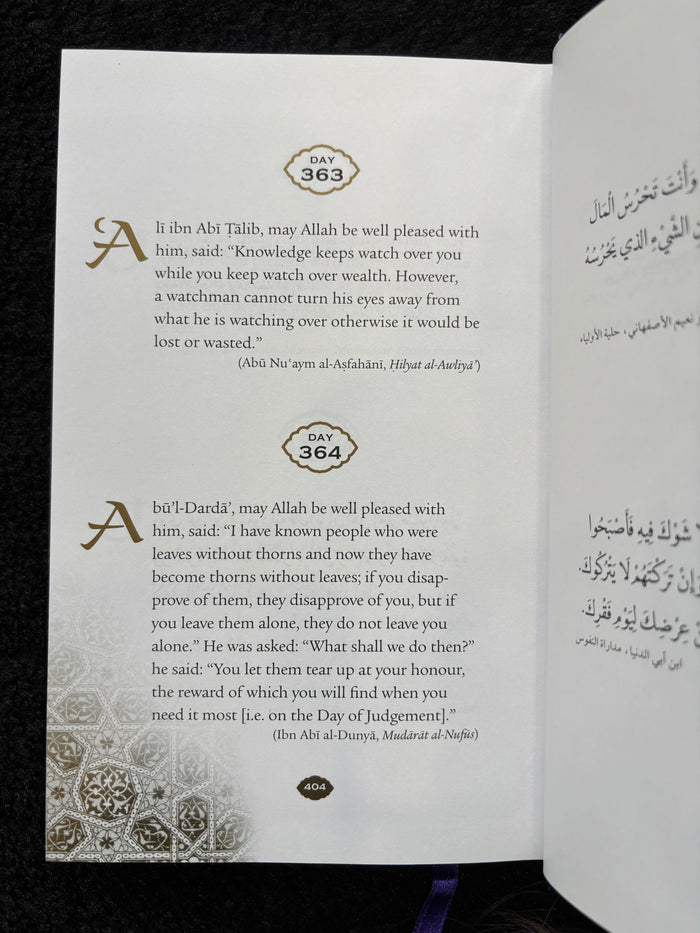 DAY
363
ʿAlī ibn Abī Ṭālib, may Allah be well pleased with
him, said: “Knowledge keeps watch over you
while you keep watch over wealth. However,
a watchman cannot turn his eyes away from
what he is watching over otherwise it would be
lost or wasted.”
(Abū Nuʿaym al-Aṣfahānī, Ḥilyat al-Awliyāʾ)
DAY
364
Abū’l-Dardā’, may Allah be well pleased with
him, said: “I have known people who were
leaves without thorns and now they have
become thorns without leaves; if you disap-
prove of them, they disapprove of you, but if
you leave them alone, they do not leave you
alone.” He was asked: “What shall we do then?”
he said: “You let them tear up at your honour,
the reward of which you will find when you
need it most [i.e. on the Day of Judgement].”
(Ibn Abī al-Dunyā, Mudārāt al-Nufūs)
404
وَأَنْتَ تَحْرُسُ الْمَالَ
الشَّيْءِ الذي يَحْرُسُهُ
نعيم الأصفهاني، حلية الأولياء
شَوْكَ فِيهِ فَأَصْبَحُوا
وَإِنْ تَرَكْتَهُمْ لَا يَتْرُكُوكَ.
عِرْضِكَ لِيَوْمِ فَقْرِكَ.
ابن أبي الدنيا، مداراة النفوس